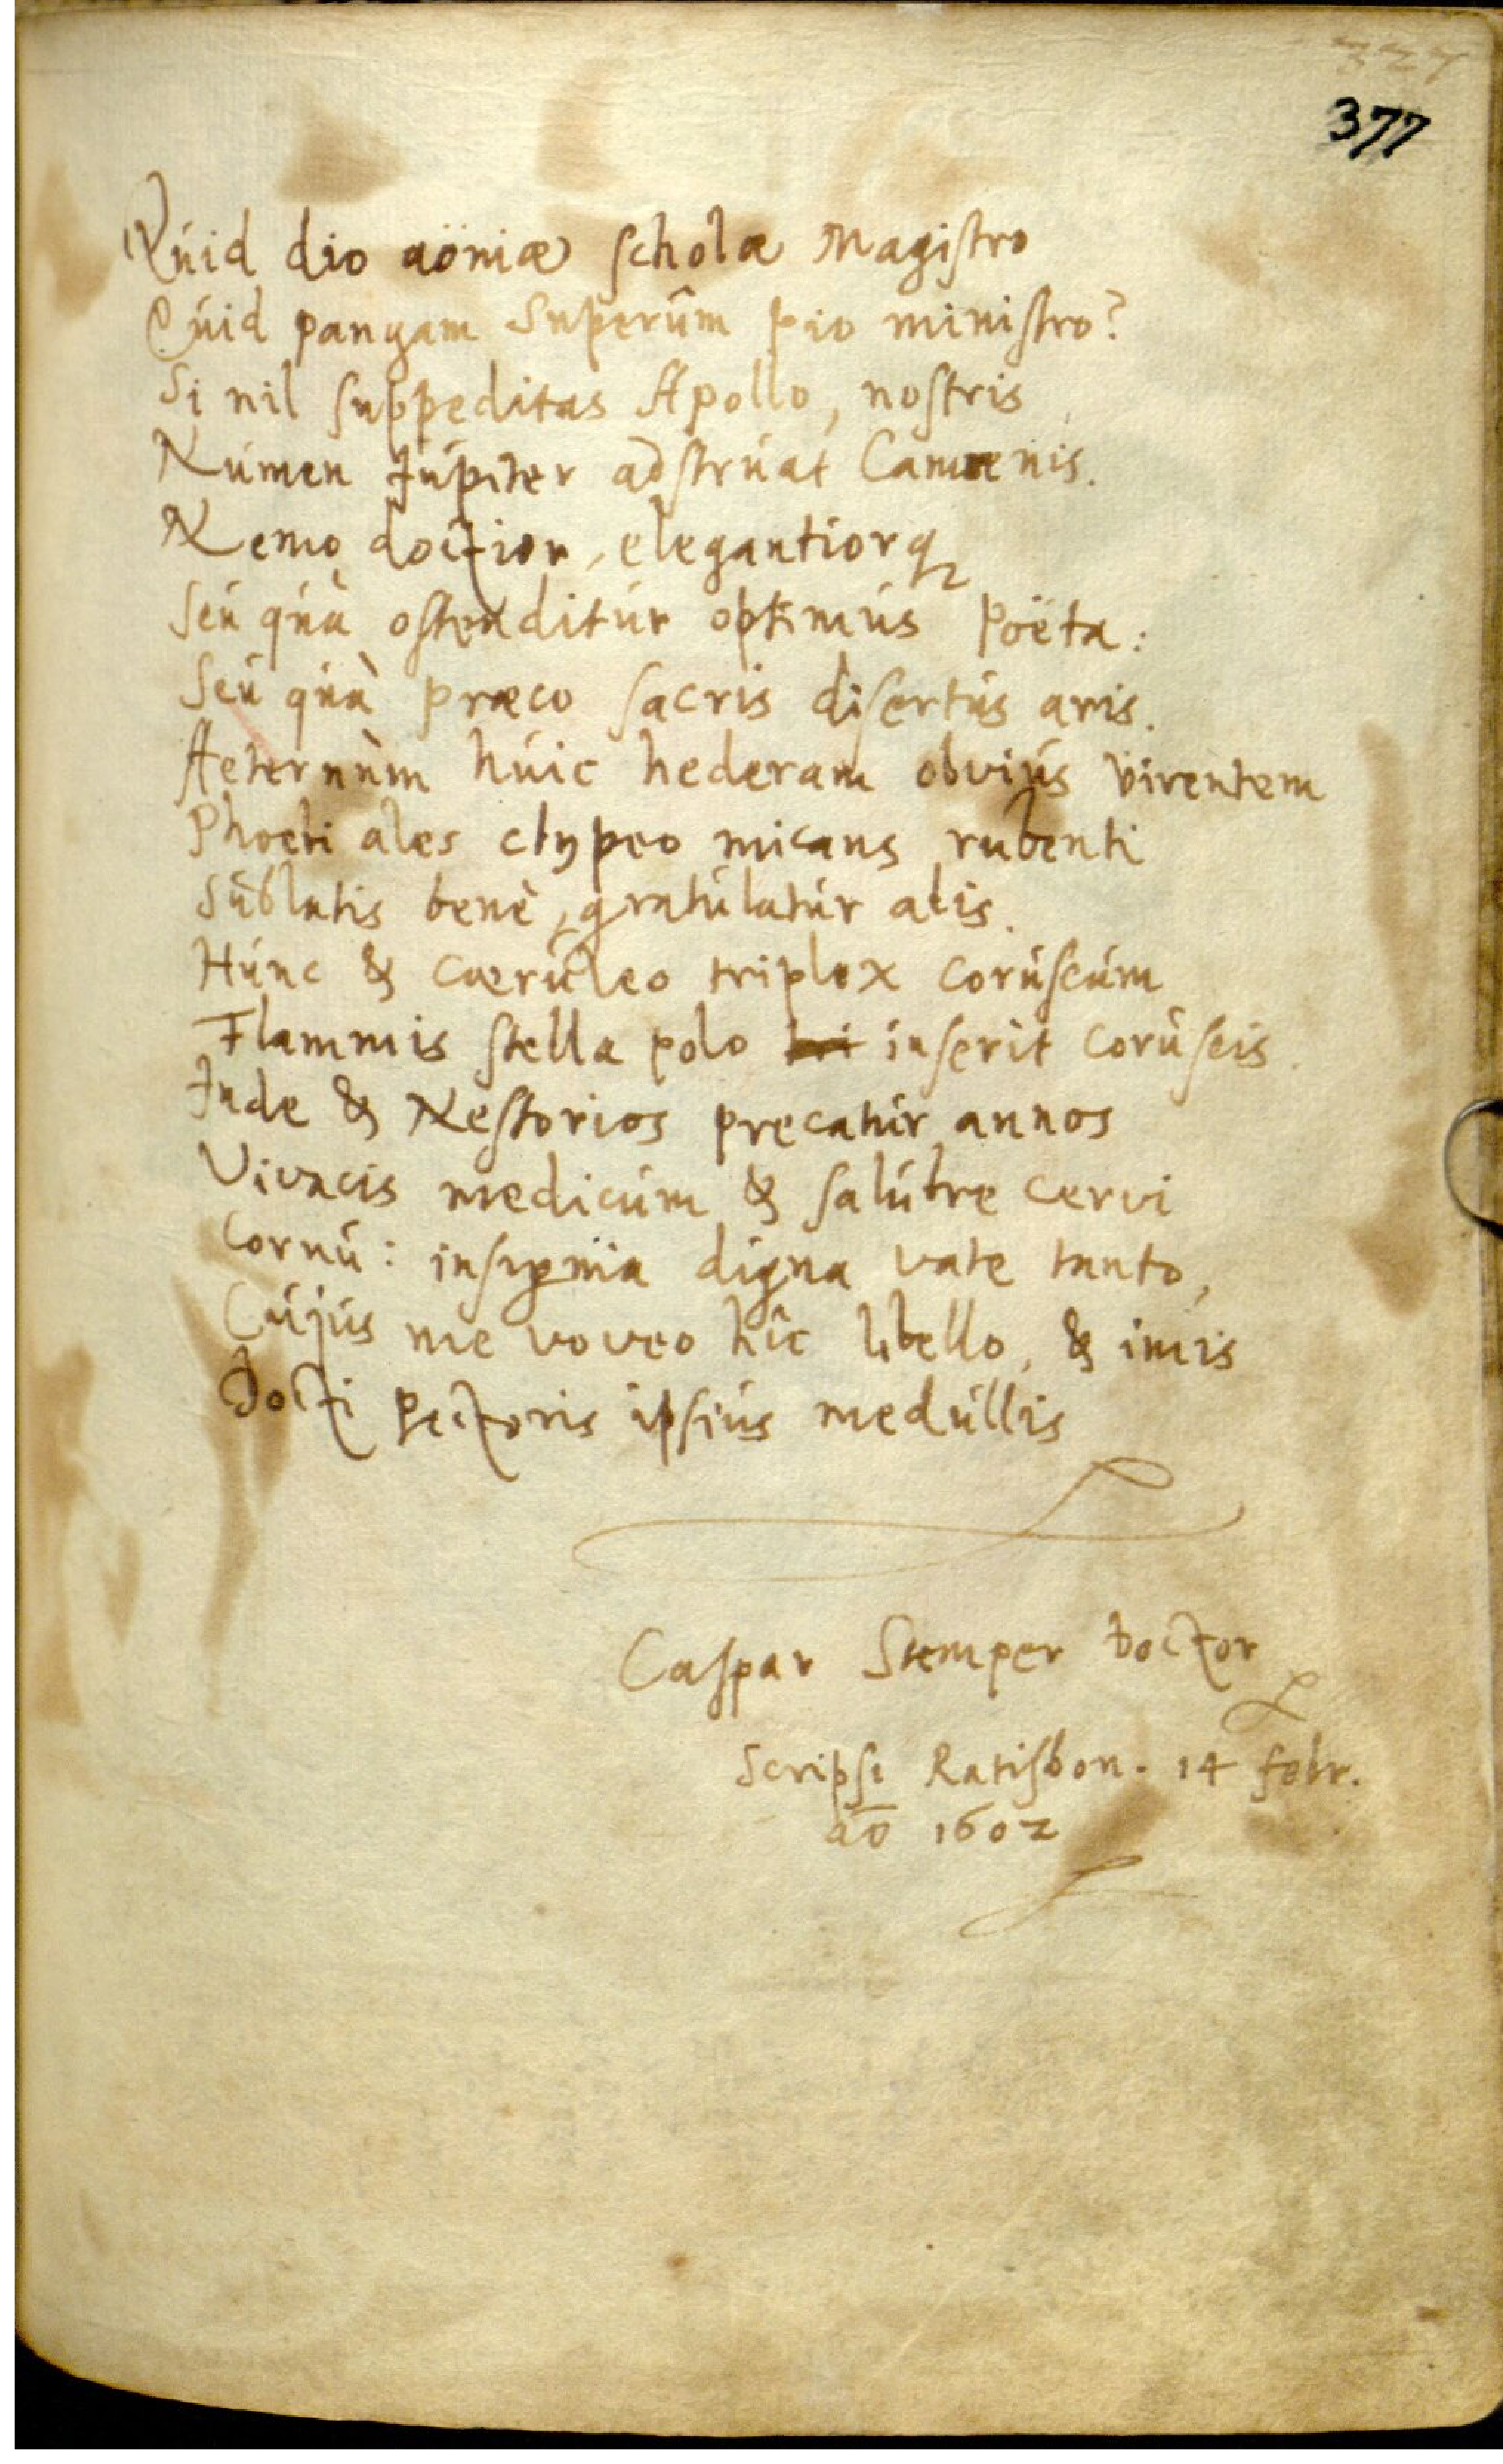 377
Quid dio aöniæ scholæ Magistro
Quid pangam Superûm pio ministro?
Si nil suppeditas Apollo, nostris
Numen Jupiter adstruat Camænis.
Nemo doctior, elegantiorq
Seu quà ostenditur optimus Poëta:
Seu quà præco sacris disertus aris.
Aeternùm huic hederam obvius virentem
Phoebi ales clypeo micans rubenti
Sublatis benè, gratulatur alis.
Hunc & cæruleo triplex coruscum
Flammis stella polo inserit coruscis.
Inde & Nestorios precatur annos
Vivacis medicum & salubre cervi
Cornu: insignia digna vate tanto,
Cujus me voveo hîc libello, & imis
Docti pectoris ipsius medullis
Caspar Stemper Doctor
Scripsi Ratisbon. 14 febr.
aō 1602